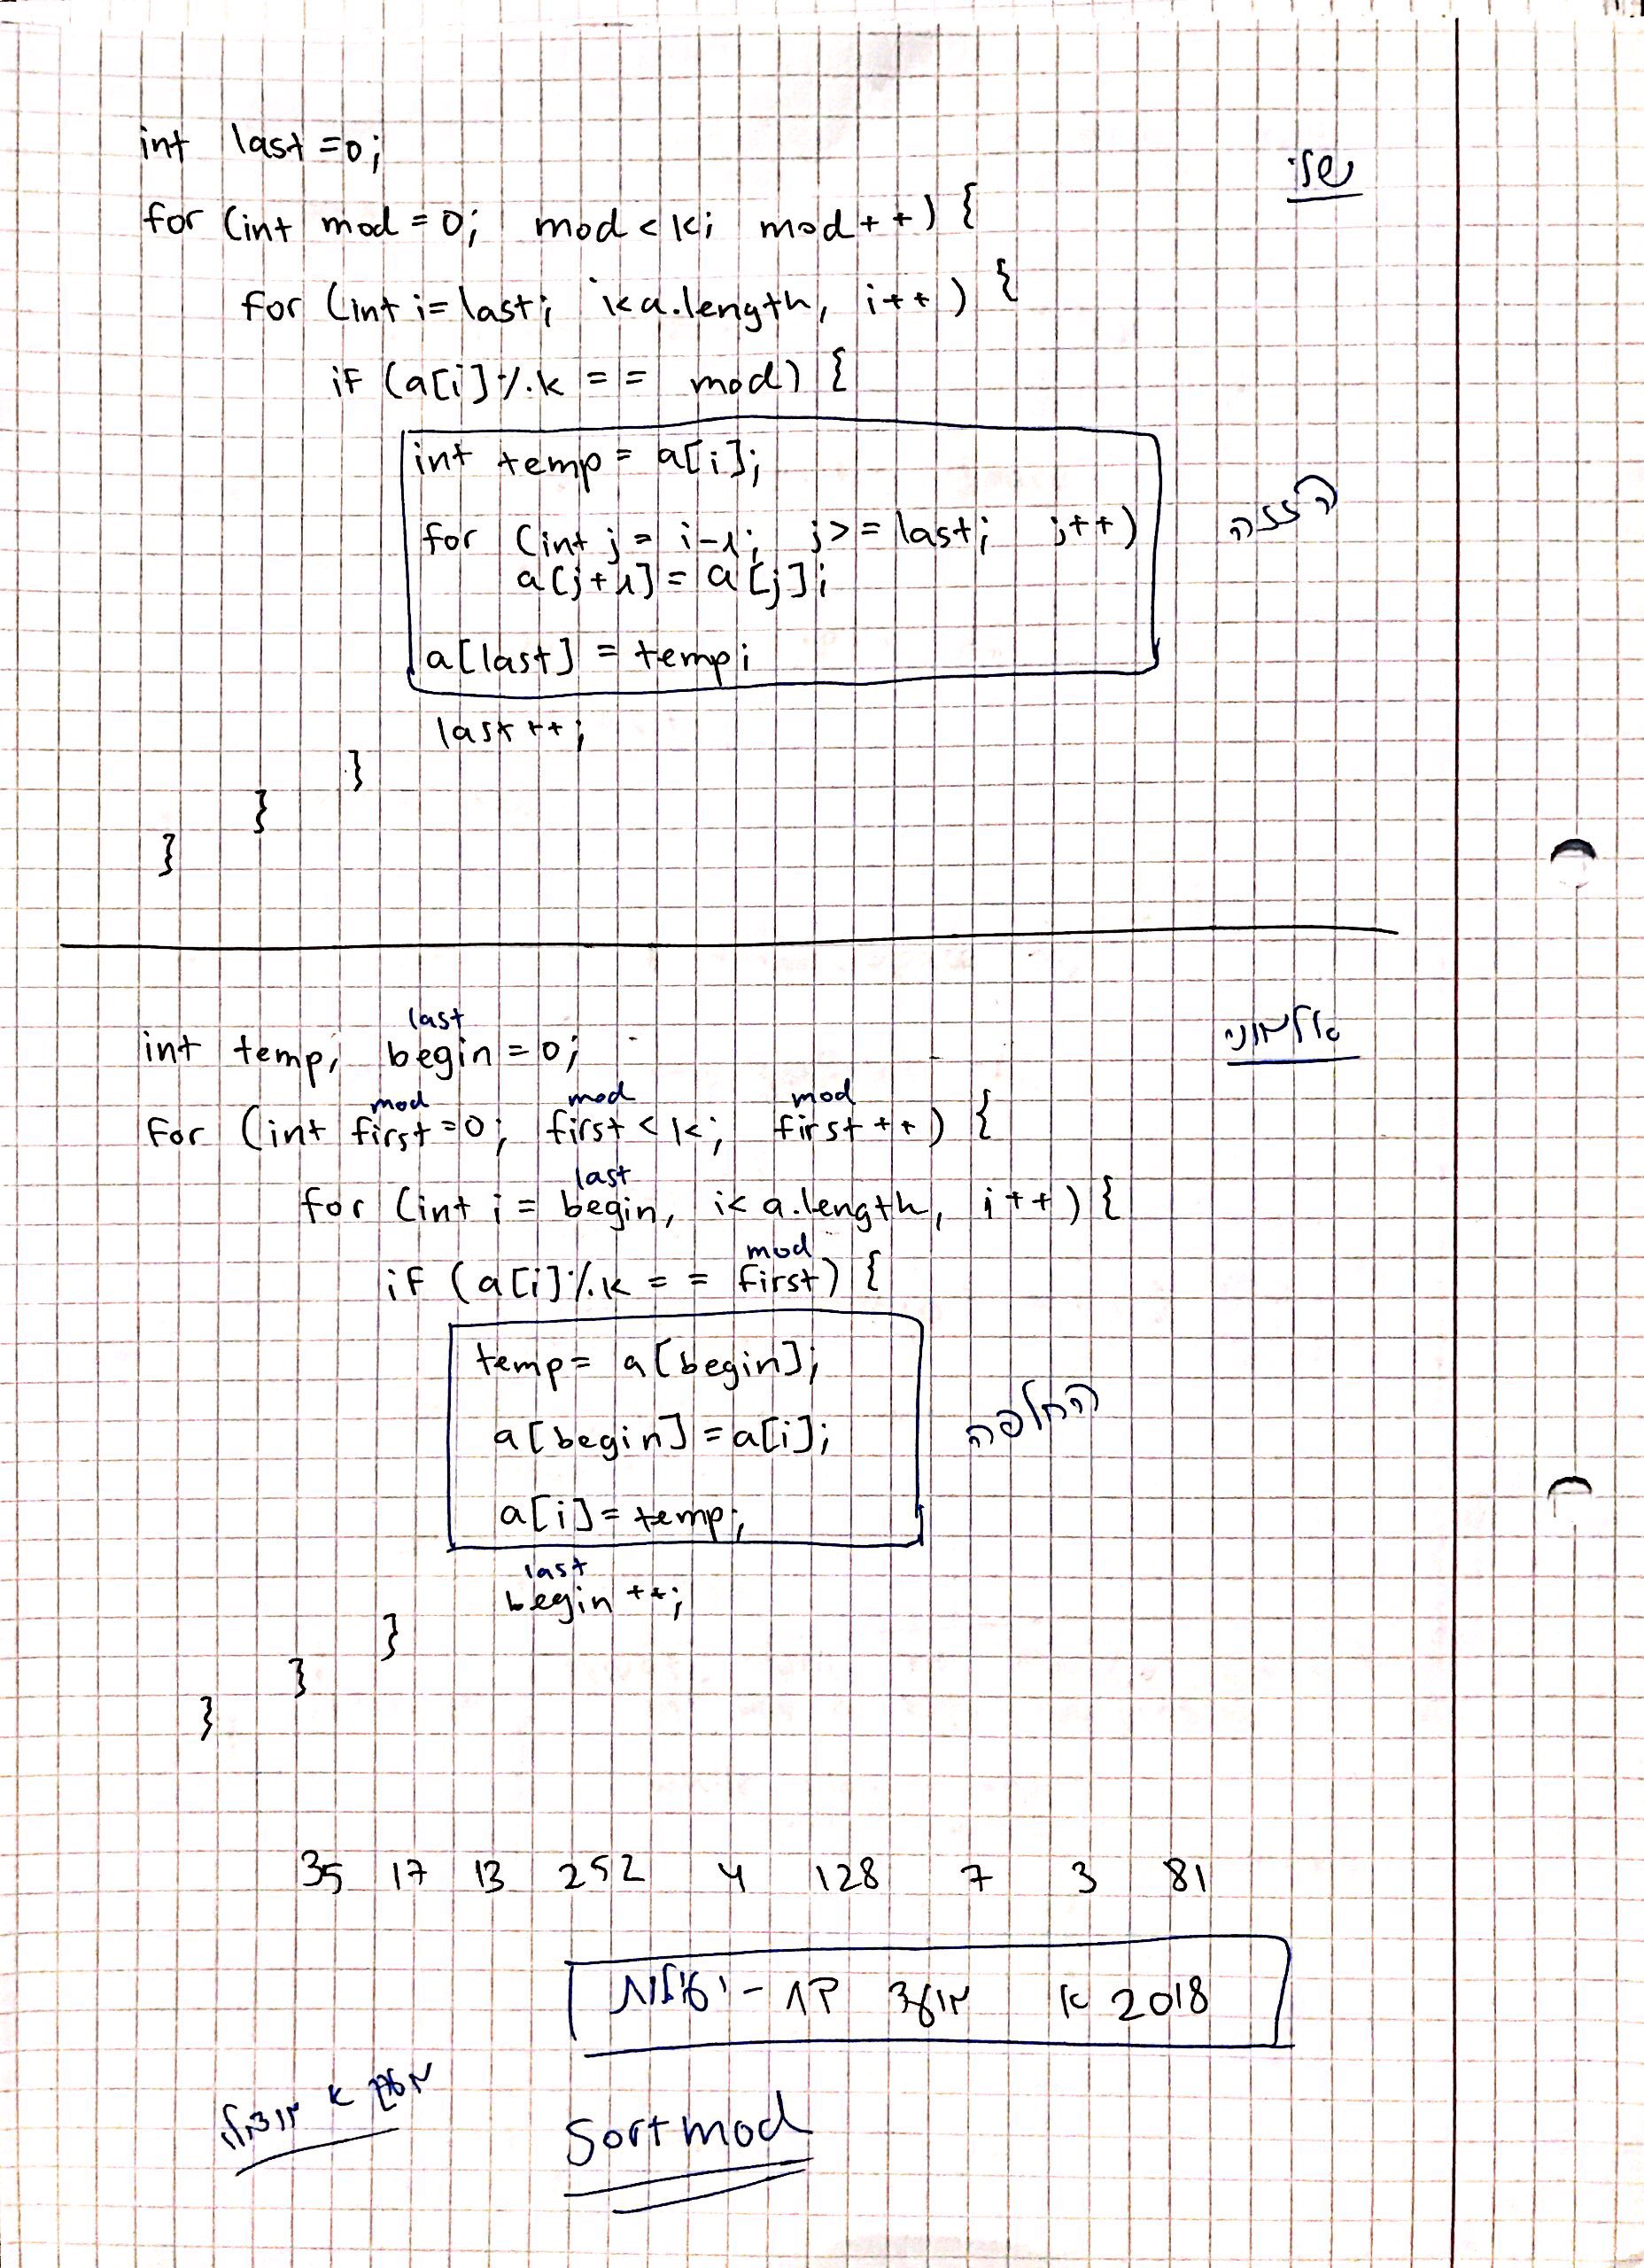 שלי
int last=0;
for (int mod=0; mod<k; mod++) {
for (int i=last; i<a.length, i++) {
if (a[i]%k == mod) {
int temp= a[i];
for (int j= i-1; j>=last; j++)
הזזה
a[j+1]=a[j];
a[last] = temp;
last++;
}
}
}
last
int temp, begin=0;
mod mod mod
for (int first=0; first<k; first++) {
last
for (int i= begin, i<a.length, i++) {
mod
if (a[i]%k == first) {
temp= a[begin];
a[begin]=a[i];
החלפה
a[i]=temp;
last
begin++;
}
}
}
35 17 13 252 4 128 7 3 81
מועד א 2018
Sortmod